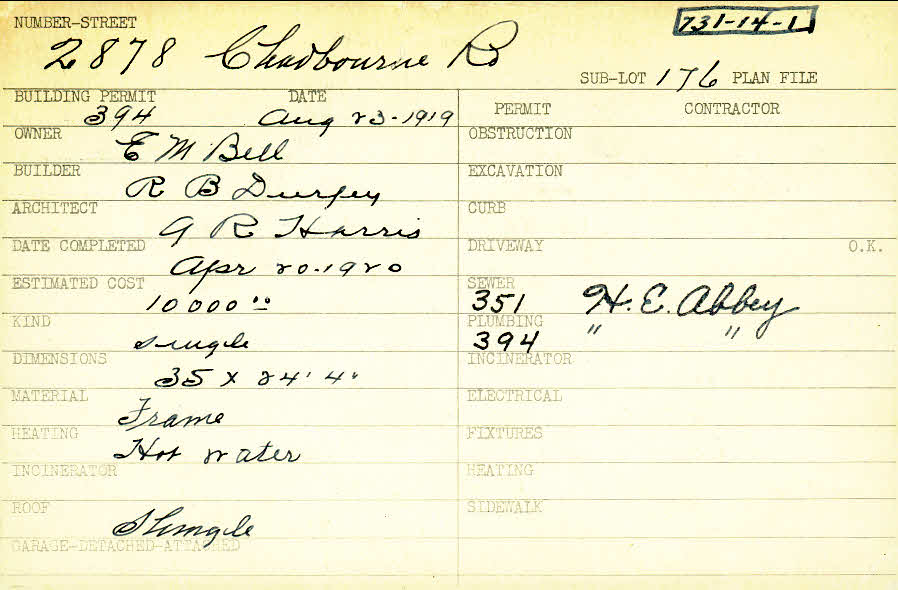 NUMBER-STREET
731-14-1
2878 Chadbourne Rd
SUB-LOT 176 PLAN FILE
BUILDING PERMIT DATE
394 Aug 23-1919
OWNER
E M Bell
BUILDER
R B Durfey
ARCHITECT
A R Harris
DATE COMPLETED
Apr 20-1920
ESTIMATED COST
10000.00
KIND
single
DIMENSIONS
35 x 24' 4"
MATERIAL
Frame
HEATING
Hot water
INCINERATOR
ROOF
Shingle
GARAGE-DETACHED-ATTACHED
PERMIT CONTRACTOR
OBSTRUCTION
EXCAVATION
CURB
DRIVEWAY O.K.
SEWER
351 H. E. Abbey
PLUMBING
394 " "
INCINERATOR
ELECTRICAL
FIXTURES
HEATING
SIDEWALK